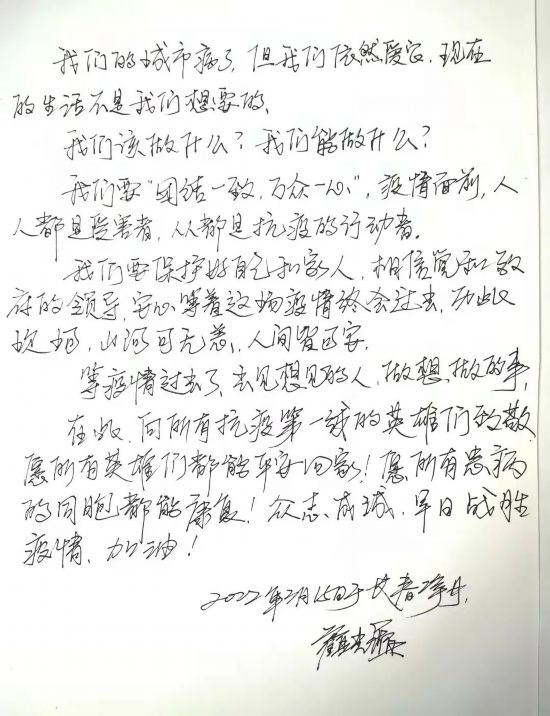 我们的城市病了，但我们依然爱它，现在
的生活不是我们想要的。
我们该做什么？我们能做什么？
我们要“团结一致，万众一心”，疫情面前，人
人都是受害者，人人都是抗疫的行动者。
我们要保护好自己和家人，相信党和政
府的领导，安心等着这场疫情终会过去，
山河可无恙，人间皆可安。
等疫情过去了，去见想见的人，做想做的事，
在此，向所有抗疫第一线的英雄们致敬
愿所有英雄们都能平安回家！愿所有患病
的同胞都能康复！众志成城，早日战胜
疫情，加油！
2022年3月15日于长春净月，